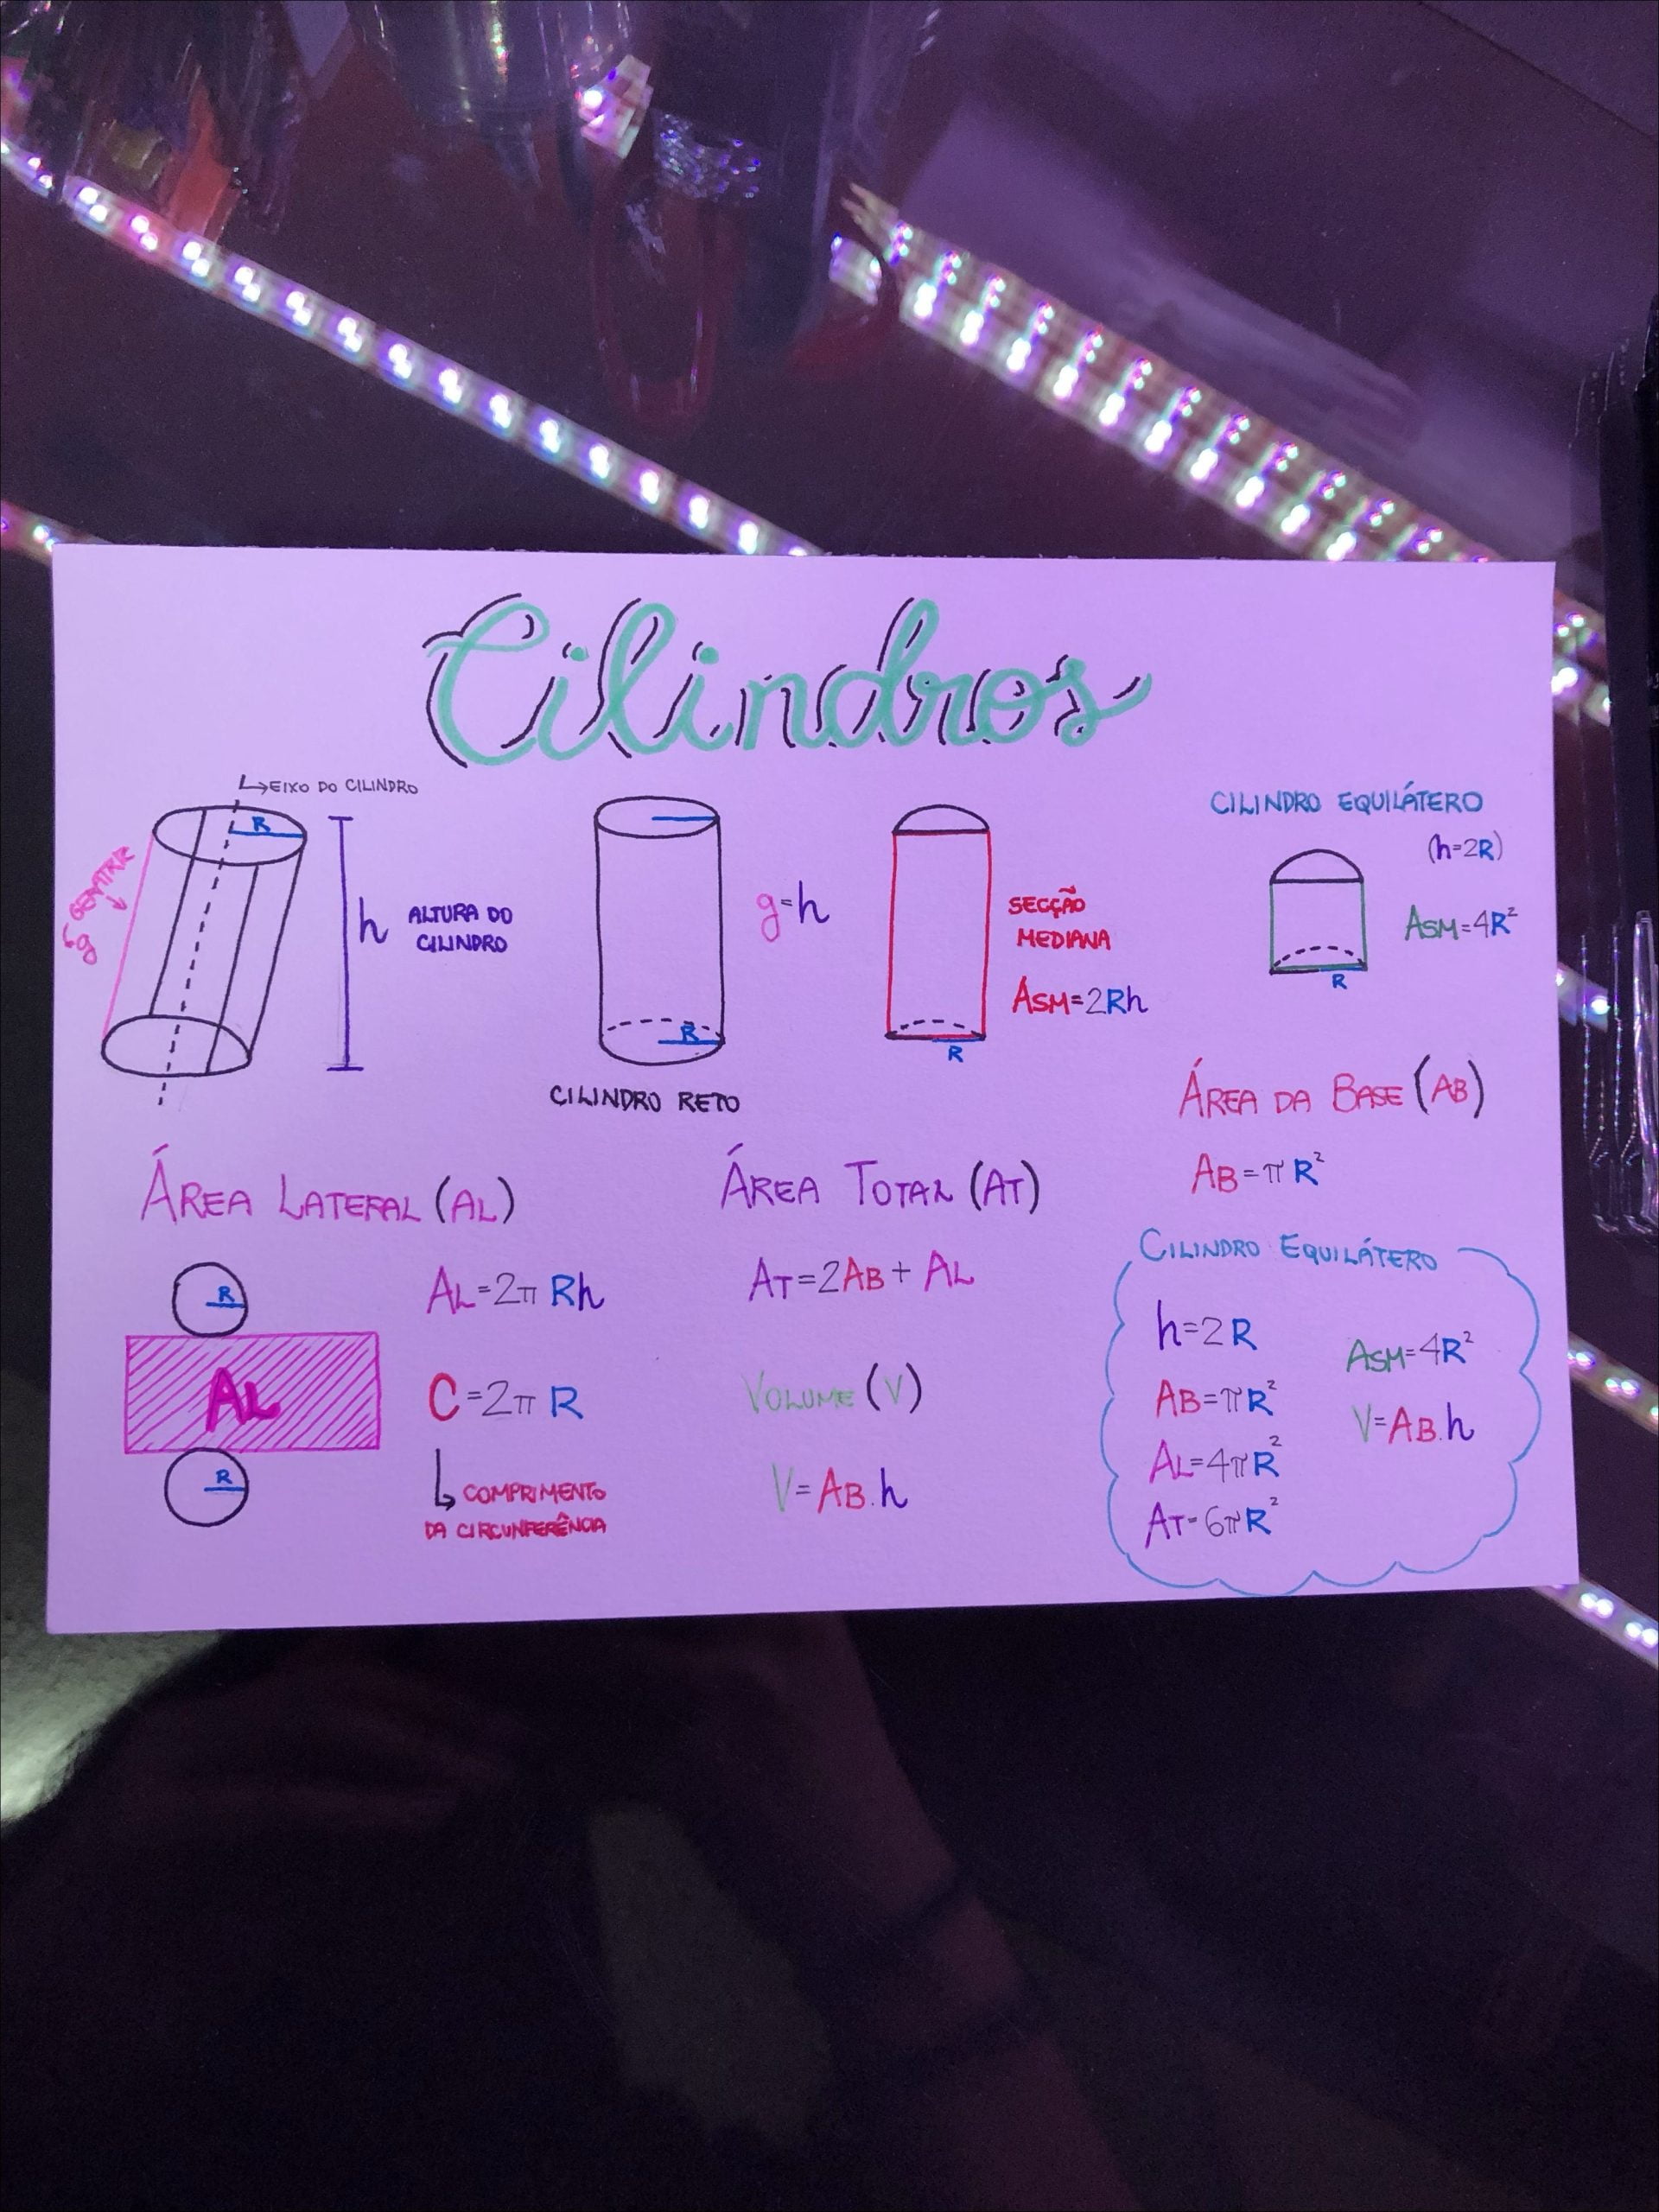 Cilindros
↳EIXO DO CILINDRO
R
GERATRIZ
g
h
ALTURA DO
CILINDRO
R
CILINDRO RETO
g=h
SECÇÃO
MEDIANA
ASM=2Rh
R
CILINDRO EQUILÁTERO
(h=2R)
ASM=4R²
R
ÁREA DA BASE (AB)
AB=πR²
ÁREA LATERAL (AL)
R
AL
R
AL=2π Rh
C=2π R
↳ COMPRIMENTO
DA CIRCUNFERÊNCIA
ÁREA TOTAL (AT)
AT=2AB+ AL
VOLUME (V)
V=AB.h
CILINDRO EQUILÁTERO
h=2R
AB=πR²
AL=4πR²
AT=6πR²
ASM=4R²
V=AB.h